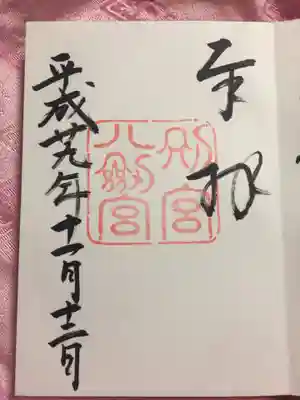 奉拝
別宮
八剣宮
平成廿九年十一月十二日